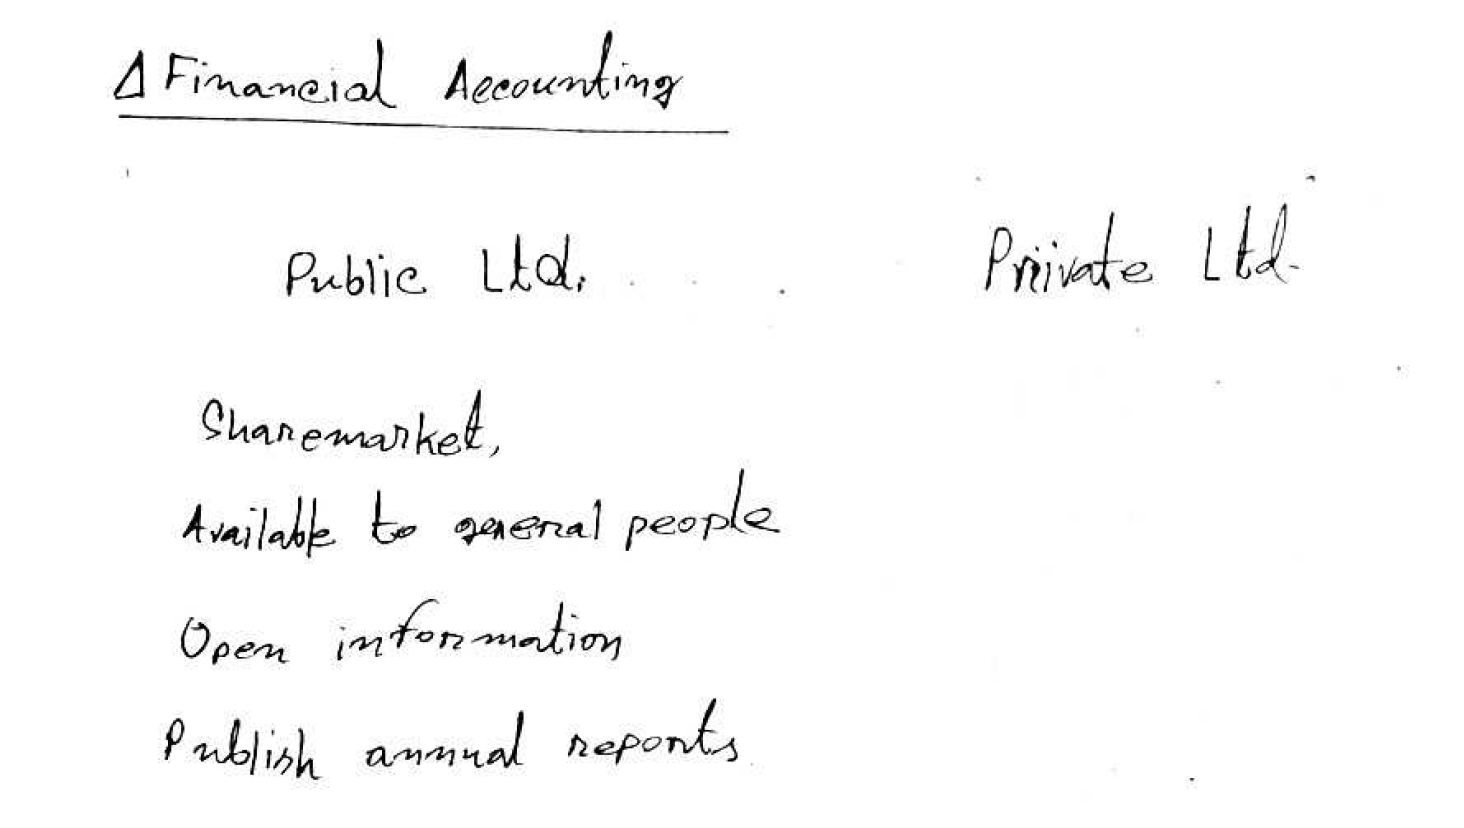 Δ Financial Accounting
Public Ltd. Private Ltd.
Sharemarket,
Available to general people
Open information
Publish annual reports